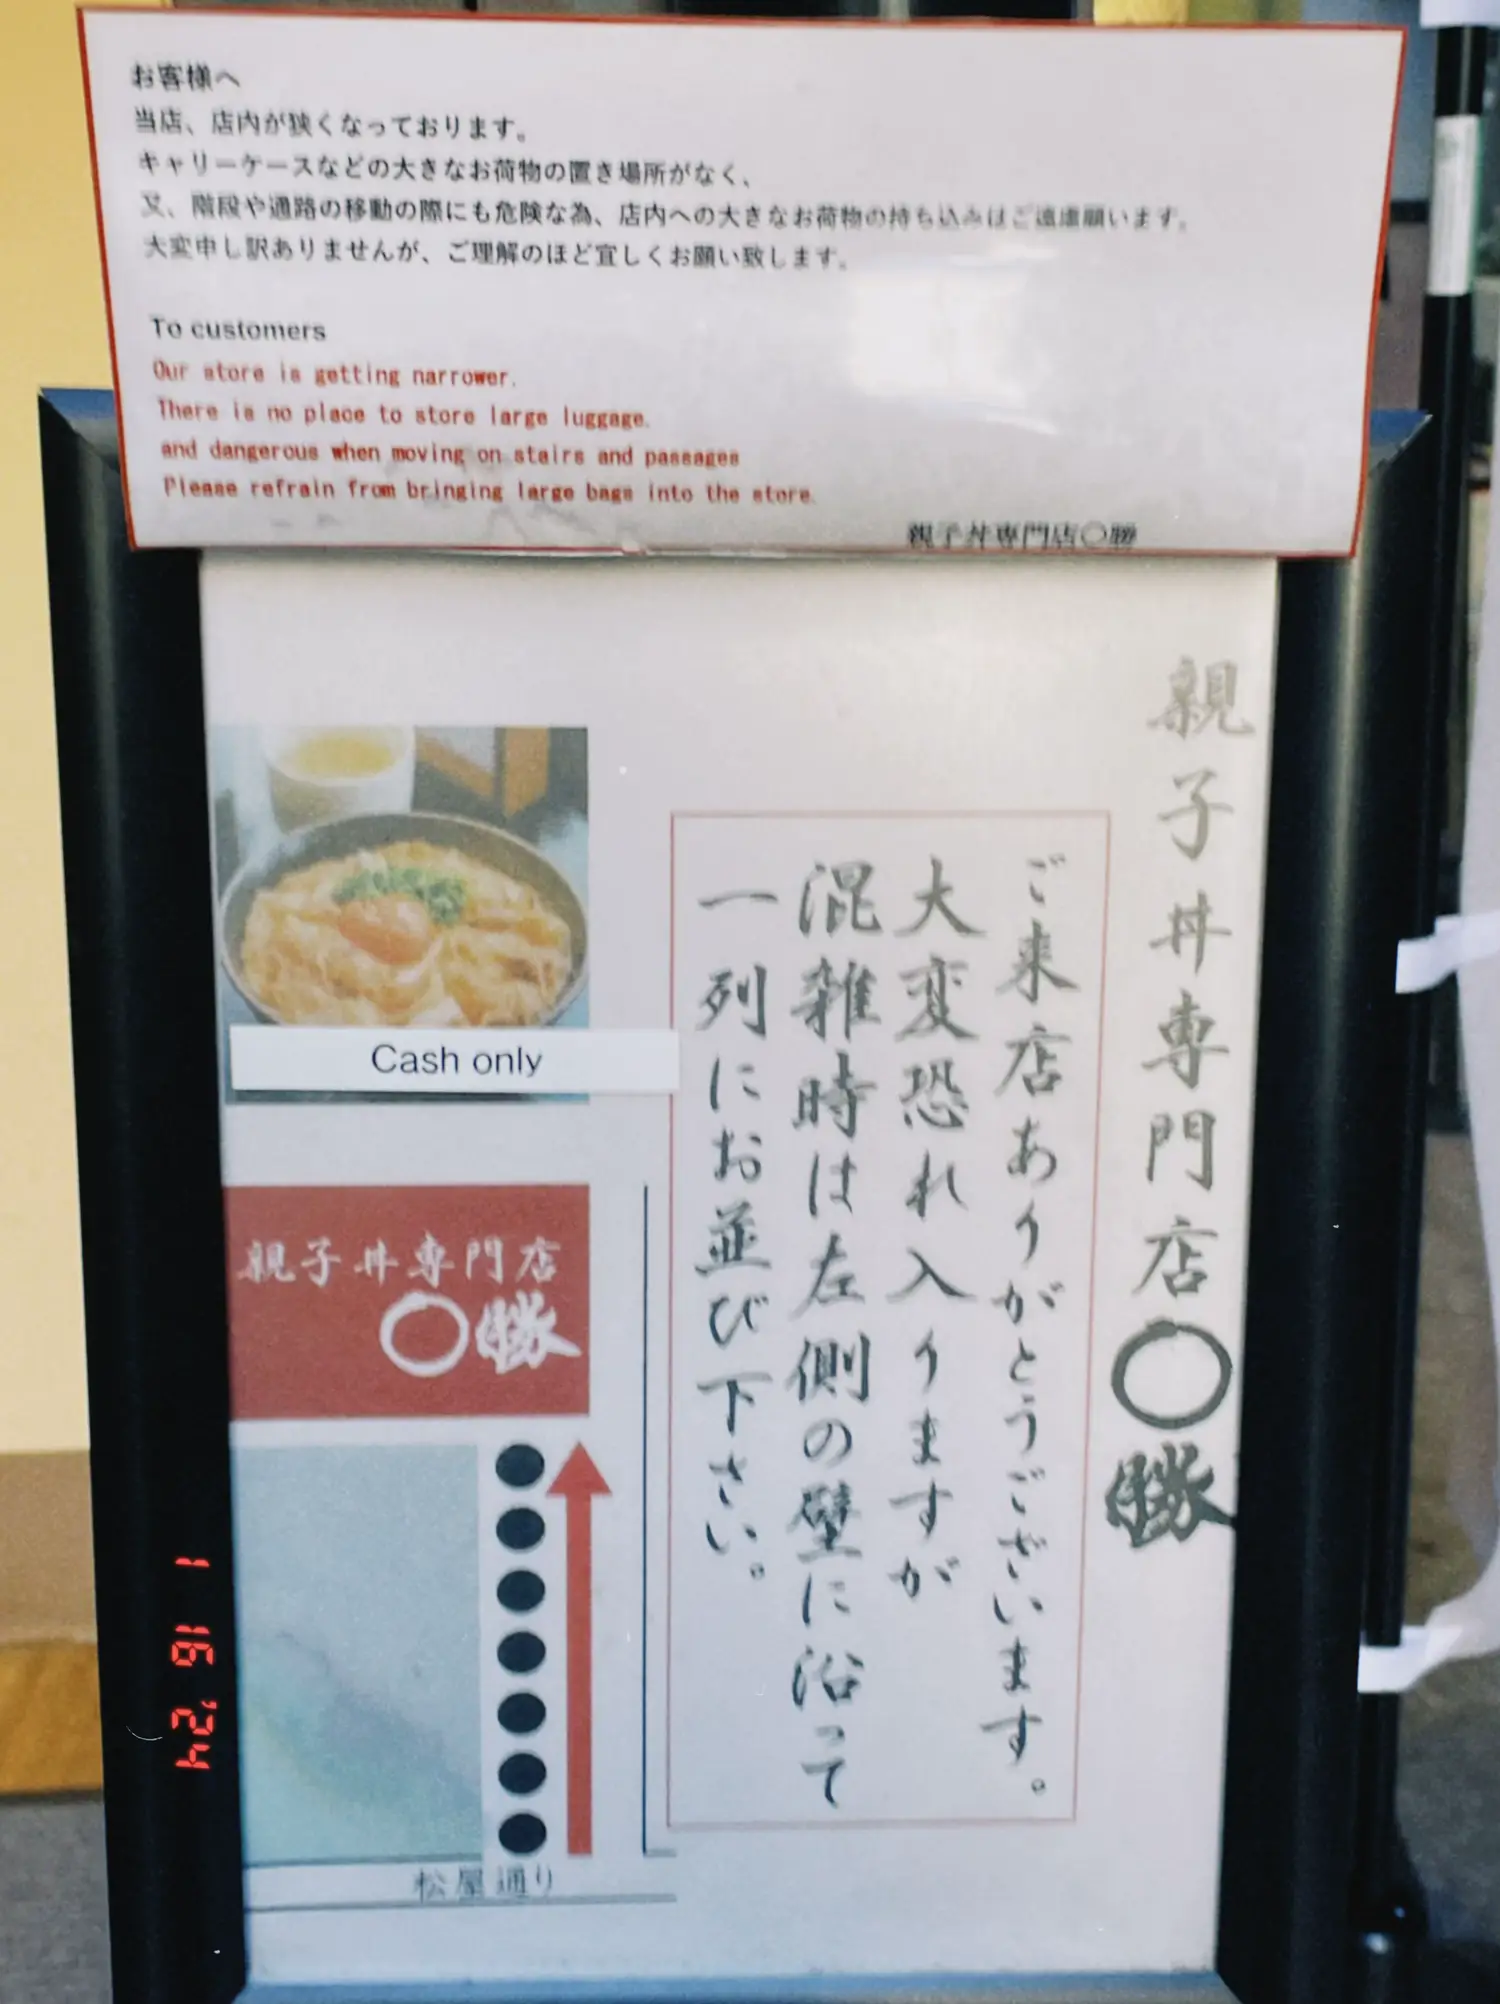 お客様へ
当店、店内が狭くなっております。
キャリーケースなどの大きなお荷物の置き場所がなく、
又、階段や通路の移動の際にも危険な為、店内への大きなお荷物の持ち込みはご遠慮願います。
大変申し訳ありませんが、ご理解のほど宜しくお願い致します。
To customers
Our store is getting narrower.
There is no place to store large luggage.
and dangerous when moving on stairs and passages
Please refrain from bringing large bags into the store.
親子丼専門店〇勝
親子丼専門店〇勝
ご来店ありがとうございます。
大変恐れ入りますが
混雑時は左側の壁に沿って
一列にお並び下さい。
Cash only
親子丼専門店
〇勝
松屋通り
1 16 '24